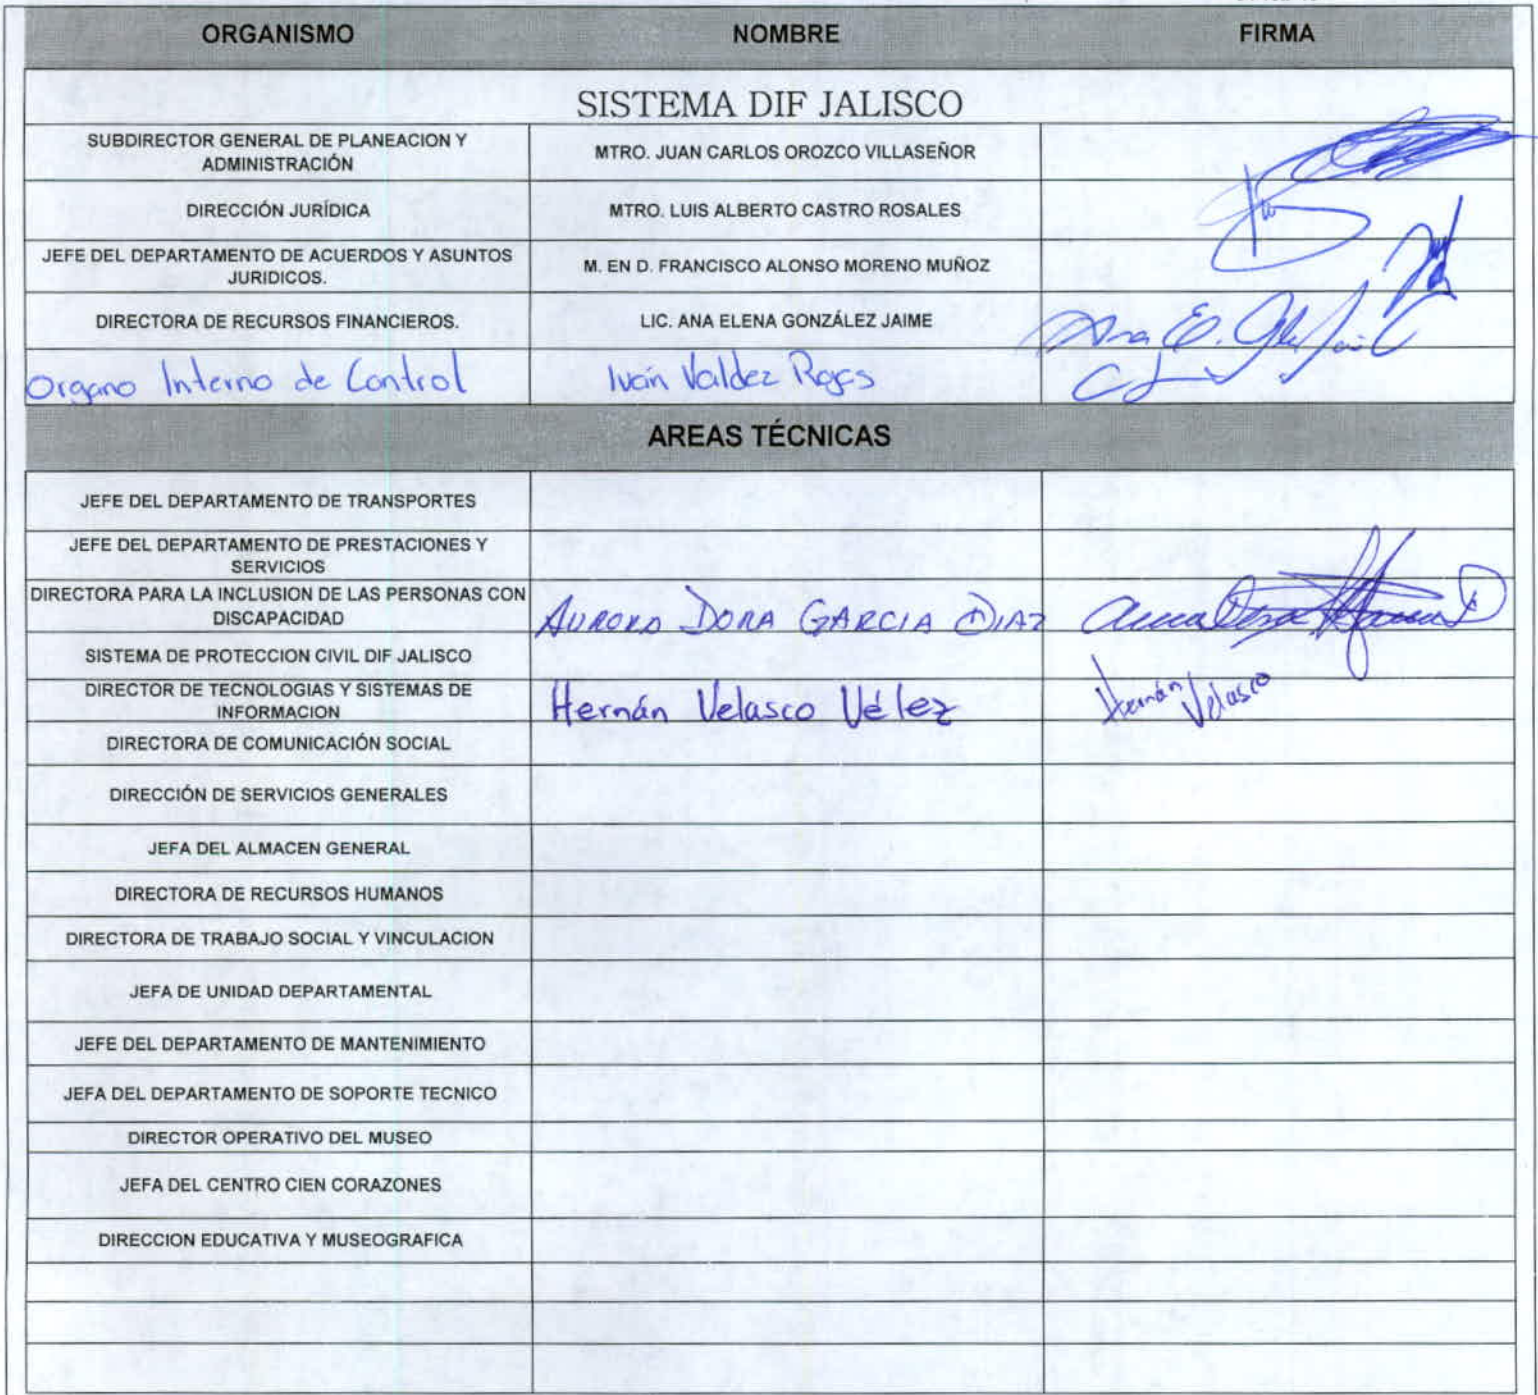 ORGANISMO NOMBRE FIRMA
SISTEMA DIF JALISCO
SUBDIRECTOR GENERAL DE PLANEACION Y
ADMINISTRACIÓN
MTRO. JUAN CARLOS OROZCO VILLASEÑOR
DIRECCIÓN JURÍDICA MTRO. LUIS ALBERTO CASTRO ROSALES
JEFE DEL DEPARTAMENTO DE ACUERDOS Y ASUNTOS
JURIDICOS.
M. EN D. FRANCISCO ALONSO MORENO MUÑOZ
DIRECTORA DE RECURSOS FINANCIEROS. LIC. ANA ELENA GONZÁLEZ JAIME Ana E.
Organo Interno de Control Iván Valdez Rojas
AREAS TÉCNICAS
JEFE DEL DEPARTAMENTO DE TRANSPORTES
JEFE DEL DEPARTAMENTO DE PRESTACIONES Y
SERVICIOS
DIRECTORA PARA LA INCLUSION DE LAS PERSONAS CON
DISCAPACIDAD
AURORA DORA GARCIA DIAZ
SISTEMA DE PROTECCION CIVIL DIF JALISCO
DIRECTOR DE TECNOLOGIAS Y SISTEMAS DE
INFORMACION
Hernán Velasco Vélez Hernán
Velasco
DIRECTORA DE COMUNICACIÓN SOCIAL
DIRECCIÓN DE SERVICIOS GENERALES
JEFA DEL ALMACEN GENERAL
DIRECTORA DE RECURSOS HUMANOS
DIRECTORA DE TRABAJO SOCIAL Y VINCULACION
JEFA DE UNIDAD DEPARTAMENTAL
JEFE DEL DEPARTAMENTO DE MANTENIMIENTO
JEFA DEL DEPARTAMENTO DE SOPORTE TECNICO
DIRECTOR OPERATIVO DEL MUSEO
JEFA DEL CENTRO CIEN CORAZONES
DIRECCION EDUCATIVA Y MUSEOGRAFICA